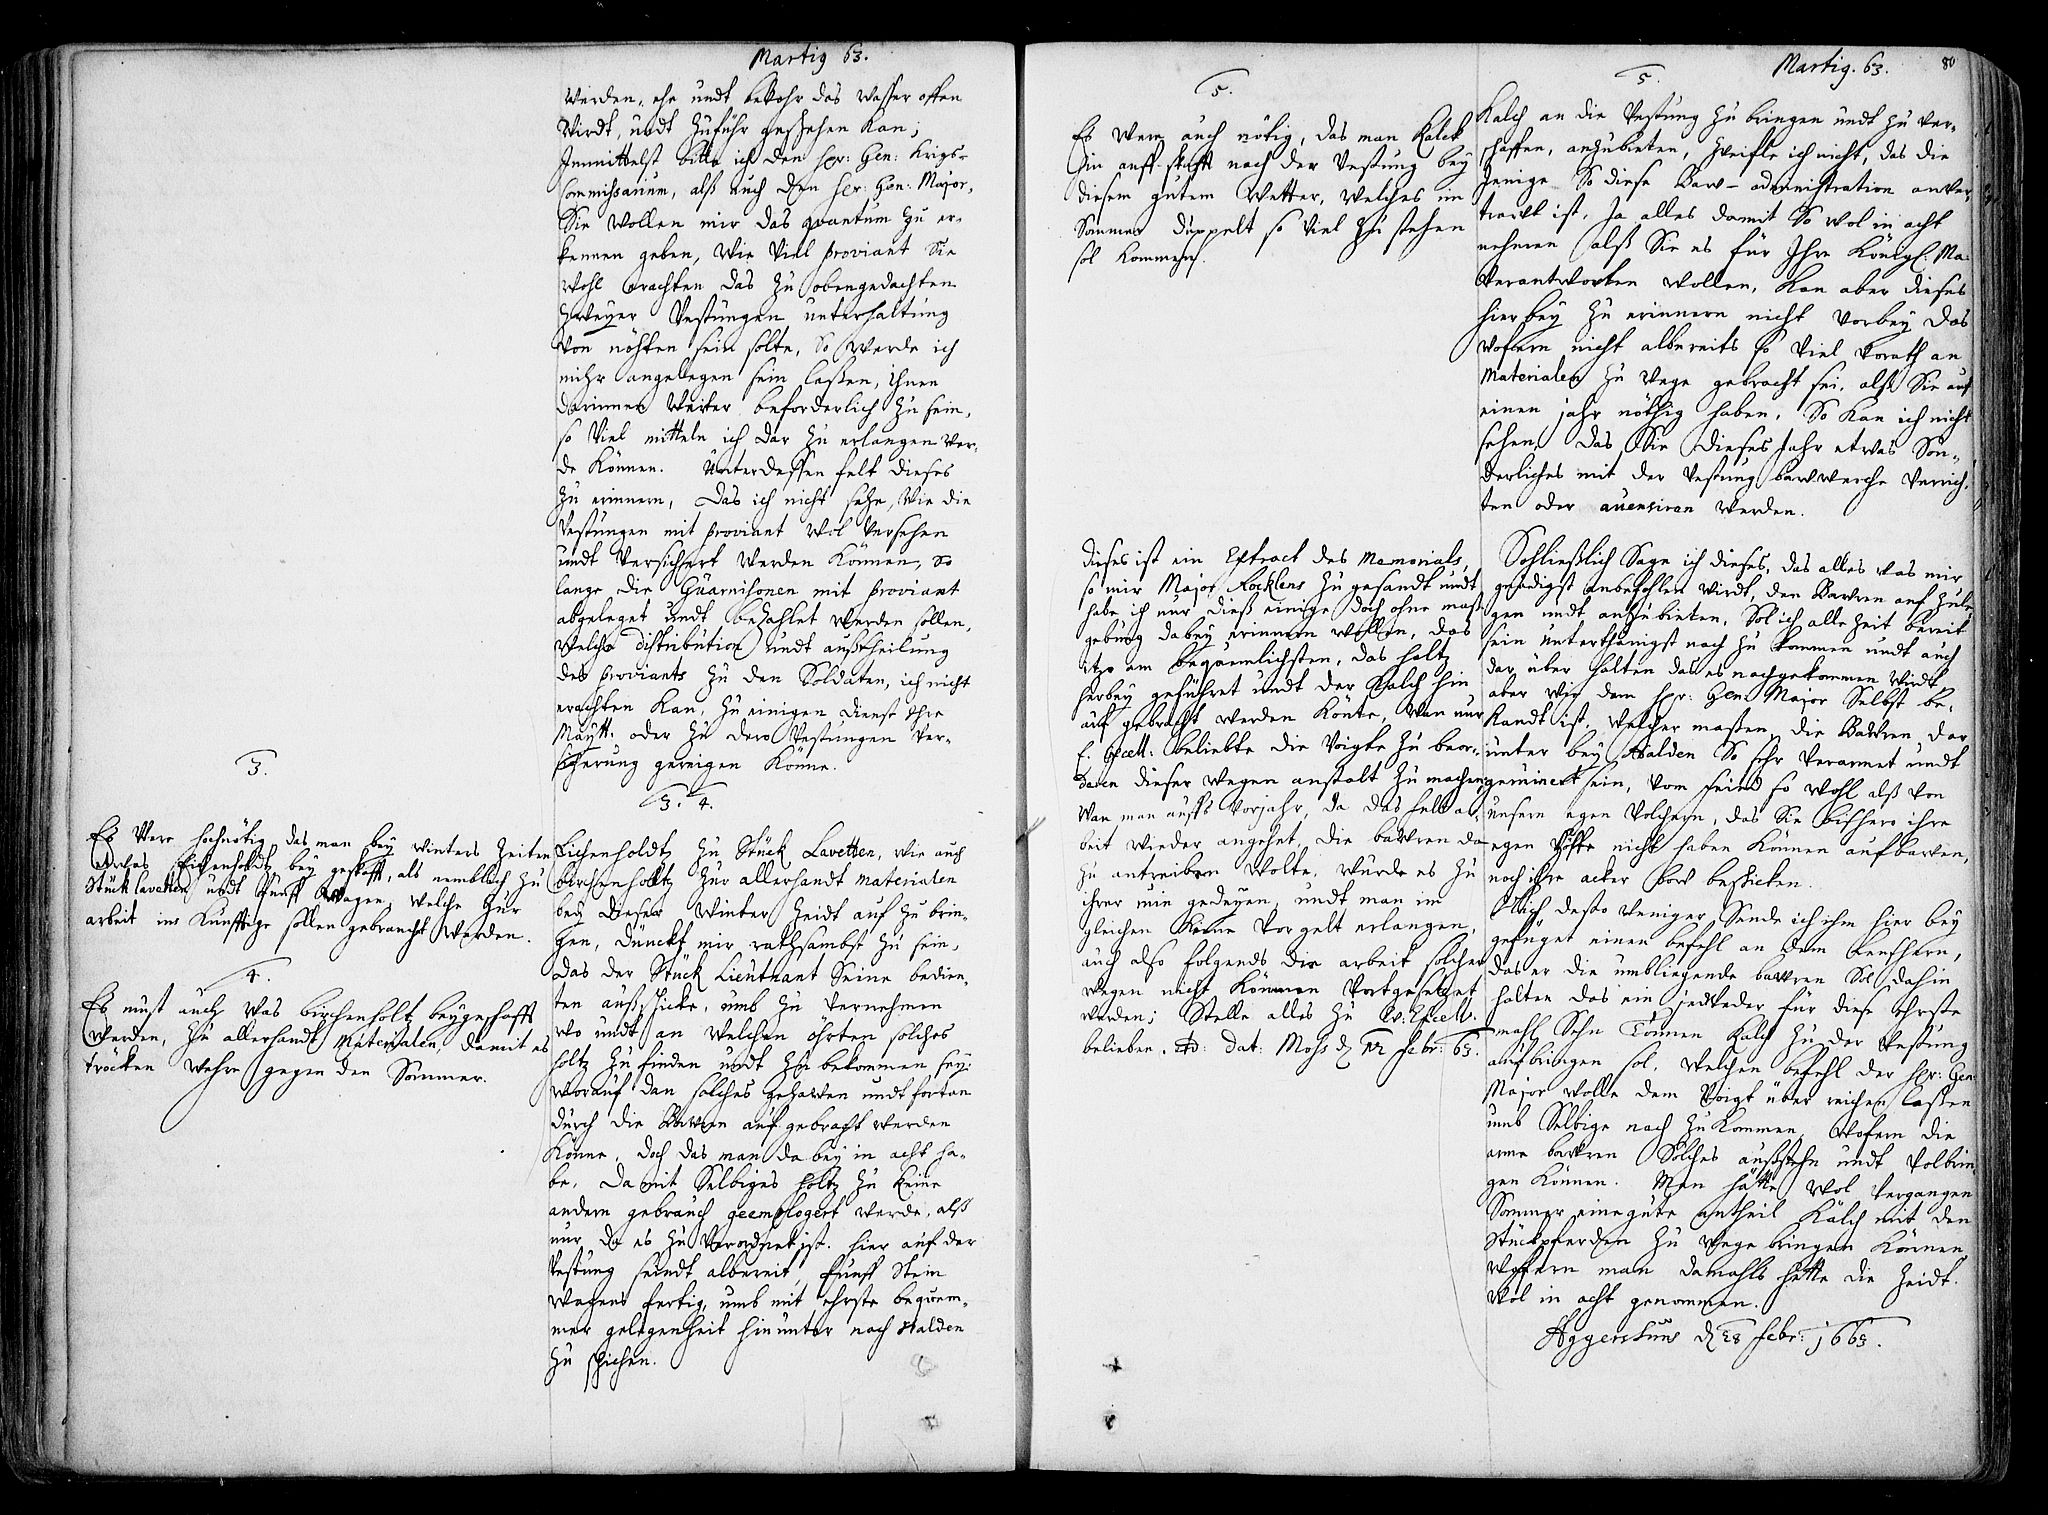 Martig 63.
werden, ehe undt bevohr das wasser offen
wirdt, undt Zuführ geschehen kan;
Immittelst bitte ich den hr: Gen: Krigs-
Commissarium, alß auch den hr: Gen: Major,
Sie wollen mir das quantum zu er-
kennen geben, wie viel proviant Sie
wohl erachten das zu obengedachten
Zweyer Vestungen unterhaltung
von nöhten sein solte, so werde ich
mihr angelegen sein laßen, ihnen
darinnen weiter beforderlich zu sein,
so viel mitteln ich dar zu erlangen wer-
de können. Unterdessen felt dieses
zu erinnern, das ich nicht sehe, wie die
Vestungen mit proviant wol versehen
undt versichert werden können, so
lange die Guarnisonen mit proviant
abgeleget undt bezahlet werden sollen,
welche distribution undt außtheilung
des proviants zu den Soldaten, ich nicht
erachten kan, zu einigen dienst Ihre
Maytt. oder zu dero Vestungen ver-
sicherung gereigen könne.
3.
Es were hochnötig, das man bey winters Zeiten
etwas Eichenholdtz bey geschafft, als nemblich zu
Stück lavetten undt fünff wagen, welche zur
arbeit ins künfftige sollen gebraucht werden.
4.
Es must auch was birchenholtz beygeschafft
werden, zu allerhandt Materialen, damit es
trocken wehre gegen den Sommer.
3. 4.
Eichenholdtz zu Stück Lavetten, wie auch
birchenholtz zur allerhandt materialen
bey dieser Winter Zeidt auf zu brin-
gen, dünckt mir rathsambst zu sein,
das der Stück Lieutnant Seine bedien-
ten außschicke, umb zu vernehmen
wo undt an welchen öhrten solches
holtz zu finden undt zu bekommen sey:
worauf dan solches gehawen undt fortan
durch die Bawren auf gebracht werden
könne, doch das man dabey in acht ha-
be, damit Selbiges holtz zu keine
andern gebrauch geemplogert werde, alß
nur da es zu verordnet ist. hier auf der
Vestung seindt albereit, fünff Stein
wagens fertig, umb mit ehrste bequem-
mer gelegenheit hinunter nach Halden
zu schicken.
5.
Es were auch nötig, das man Kalck
hin auff schafft nach der Vestung bey
diesem gutem Wetter, welches im
Sommer duppelt so viel zu stehen
sol kommen.
dieses ist ein Extract des Memorials,
so mir Major Kocklens zu gesandt undt
habe ich nur dieß einige doch ohne maß
gebung dabey erinnern wollen, das
itzo am bequemlichsten, das holtz
herbey geführet undt der Kalch hin
auf gebracht werden könte, wan nur
E. Excell: beliebte die Voigte zu beor-
deren dieser wegen anstalt zu machen,
Wan man auffs vorjahr, da das felt ar-
beit wieder angehet, die bawren da
zu antreiben wolte, würde es zu
ihrer ruin gedeyen, undt man im
gleichen keine vor gelt erlangen,
auch also folgends die arbeit solcher
wegen nicht können vortgesetzet
werden; Stelle alles zu E: Excell.
belieben. Ad: dat: Moss d 12 febr: 63.
Martig. 63.
80
5.
Kalch an die Vestung zu bringen undt zu ver-
schaffen, anzubieten, zweifle ich nicht, das die
Jenige so diese Baw-administration anver-
trawt ist, Ja alles damit so wol in acht
nehmen alß Sie es für Ihre Königl. Ma:
verantworten wollen, kan aber dieses
hierbey zu erinnern nicht vorbey das
wofern nicht albereits so viel vorath an
Materialen zu wege gebracht sei, alß Sie auf
einen jahr nöthig haben, so kan ich nicht
sehen, das Sie dieses Jahr etwas son-
derliches mit der Vestung bawwercke verrich-
ten oder auensiren werden.
Schließlich sage ich dieses, das alles was mir
gnedigst anbefohlen wirdt, den Bawren auf zule-
gen undt anzubieten, sol ich alle Zeit bereit
sein unterthänigst nach zu kommen undt auch
dar über halten das es nachgekommen wirdt
aber wie dem hr: Gen: Major Selbst be-
kandt ist, welcher maßen die Bawren dar
unter bey Halden so sehr verarmet undt
geruinert sein, vom feind so wohl alß von
unsern egen volckern, das Sie bißhero ihre
egen höffe nicht haben können aufbawen,
noch ihre acker bow beschicken.
Nich desto weniger, sende ich ihm hier bey
gefüget einen befehl an dem lensherrn,
das er die umbliegende bawren Sol dahin
halten das ein jedweder für diese ehrste
mahl Sehn Tönnen Kalch zu der Vestung
aufbringen sol, welchen befehl der hr: Gen:
Major wolle dem Voigt über reichen laßen
umb Selbige nach zu kommen, wofern die
arme bawren Solches außstehn undt volbrin-
gen können. Man hätte wol vergangen
Sommer eine gute antheil Kalch mit den
Stückpferden zu wege bringen können
wofern man damahls hette die Zeidt
wol in acht genommen.
Aggershuus d 28 febr: 1663.